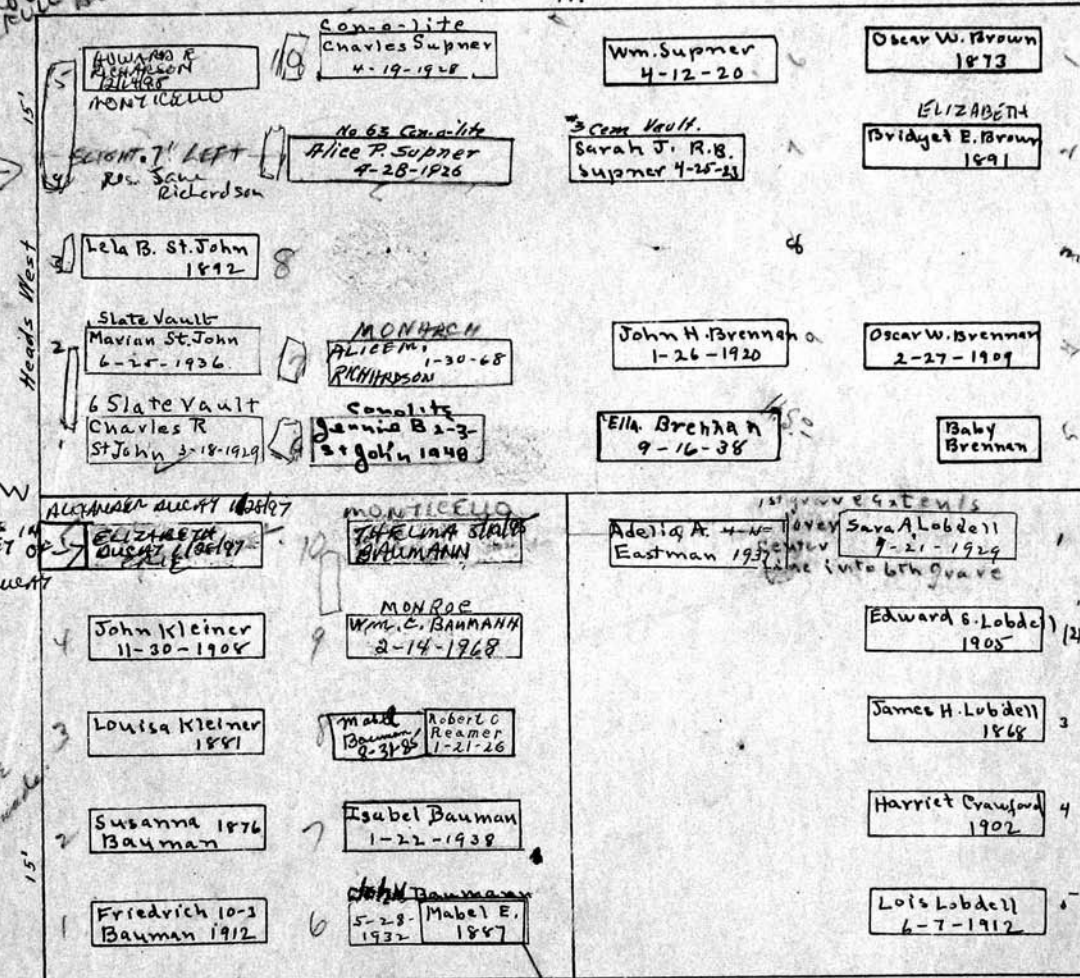 15'
Heads West
15'
5
HOWARD R
RICHARDSON
12/14/95
MONTICELLO
SLIGHT. 7' LEFT
Res. Jane
Richardson
3
Lela B. St. John
1892
8
Slate Vault
2
Marian St. John
6-25-1936
6 Slate Vault
Charles R
St John 3-18-1929
Con-o-lite
Charles Supner
4-19-1928
No 63 Con-o-lite
Alice P. Supner
4-28-1926
MONARCH
ALICE M.
1-30-68
RICHARDSON
Conolite
Jennie B 2-3-
St John 1948
Wm. Supner
4-12-20
#3 Cem Vault.
Sarah J. R.B.
Supner 4-25-23
John H. Brennan
1-26-1920
Ella Brennan
9-16-38
Oscar W. Brown
1873
ELIZABETH
Bridget E. Brown
1891
Oscar W. Brennan
2-27-1909
Baby
Brennan
ALEXANDER DUCAT 1/28/97
ELIZABETH
DUCAT
4
John Kleiner
11-30-1908
3
Louisa Kleiner
1881
2
Susanna 1876
Bauman
1
Friedrich 10-3
Bauman 1912
MONTICELLO
10
THELMA
BAUMANN
MONROE
9
Wm. C. BAUMANN
2-14-1968
8
Mabel
Bauman
8-31-85
Robert C
Reamer
1-21-26
7
Isabel Bauman
1-22-1938
6
John Baumann
5-28-
1932
Mabel E.
1887
1st grave extends
over
center
line into 6th grave
Adelia A.
Eastman 1937
Sara A Lobdell
9-21-1929
1
Edward S. Lobdell
1905
James H. Lobdell
1868
3
Harriet Crawford
1902
4
Lois Lobdell
6-7-1912